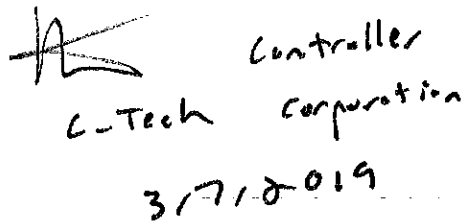 Controller
C-Tech Corporation
3/7/2019